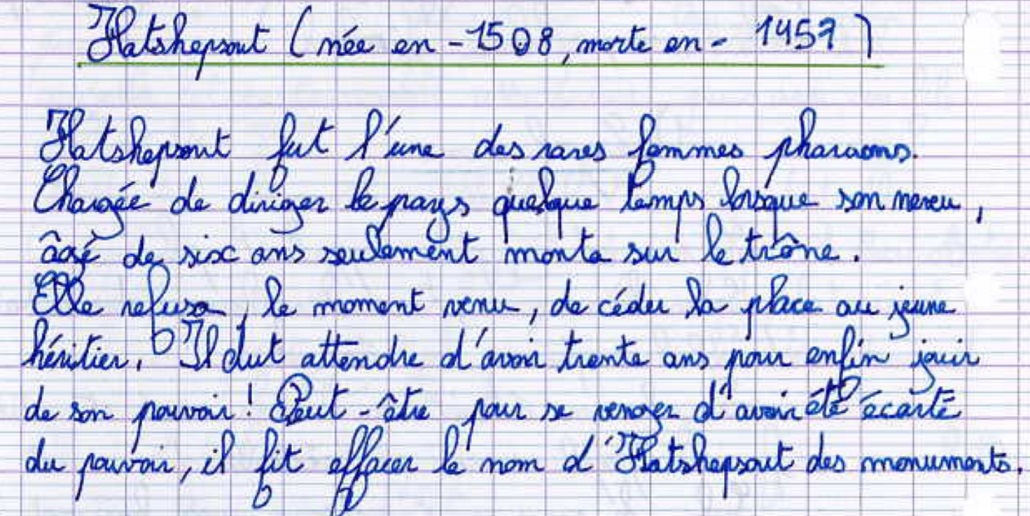 Hatshepsout (née en -1508, morte en - 1457)
Hatshepsout fut l'une des rares femmes pharaons.
Chargée de diriger le pays quelque temps lorsque son neveu,
âgé de six ans seulement monta sur le trône.
Elle refusa, le moment venu, de céder la place au jeune
héritier. Il dut attendre d'avoir trente ans pour enfin jouir
de son pouvoir ! Peut-être pour se venger d'avoir été écarté
du pouvoir, il fit effacer le nom d'Hatshepsout des monuments.